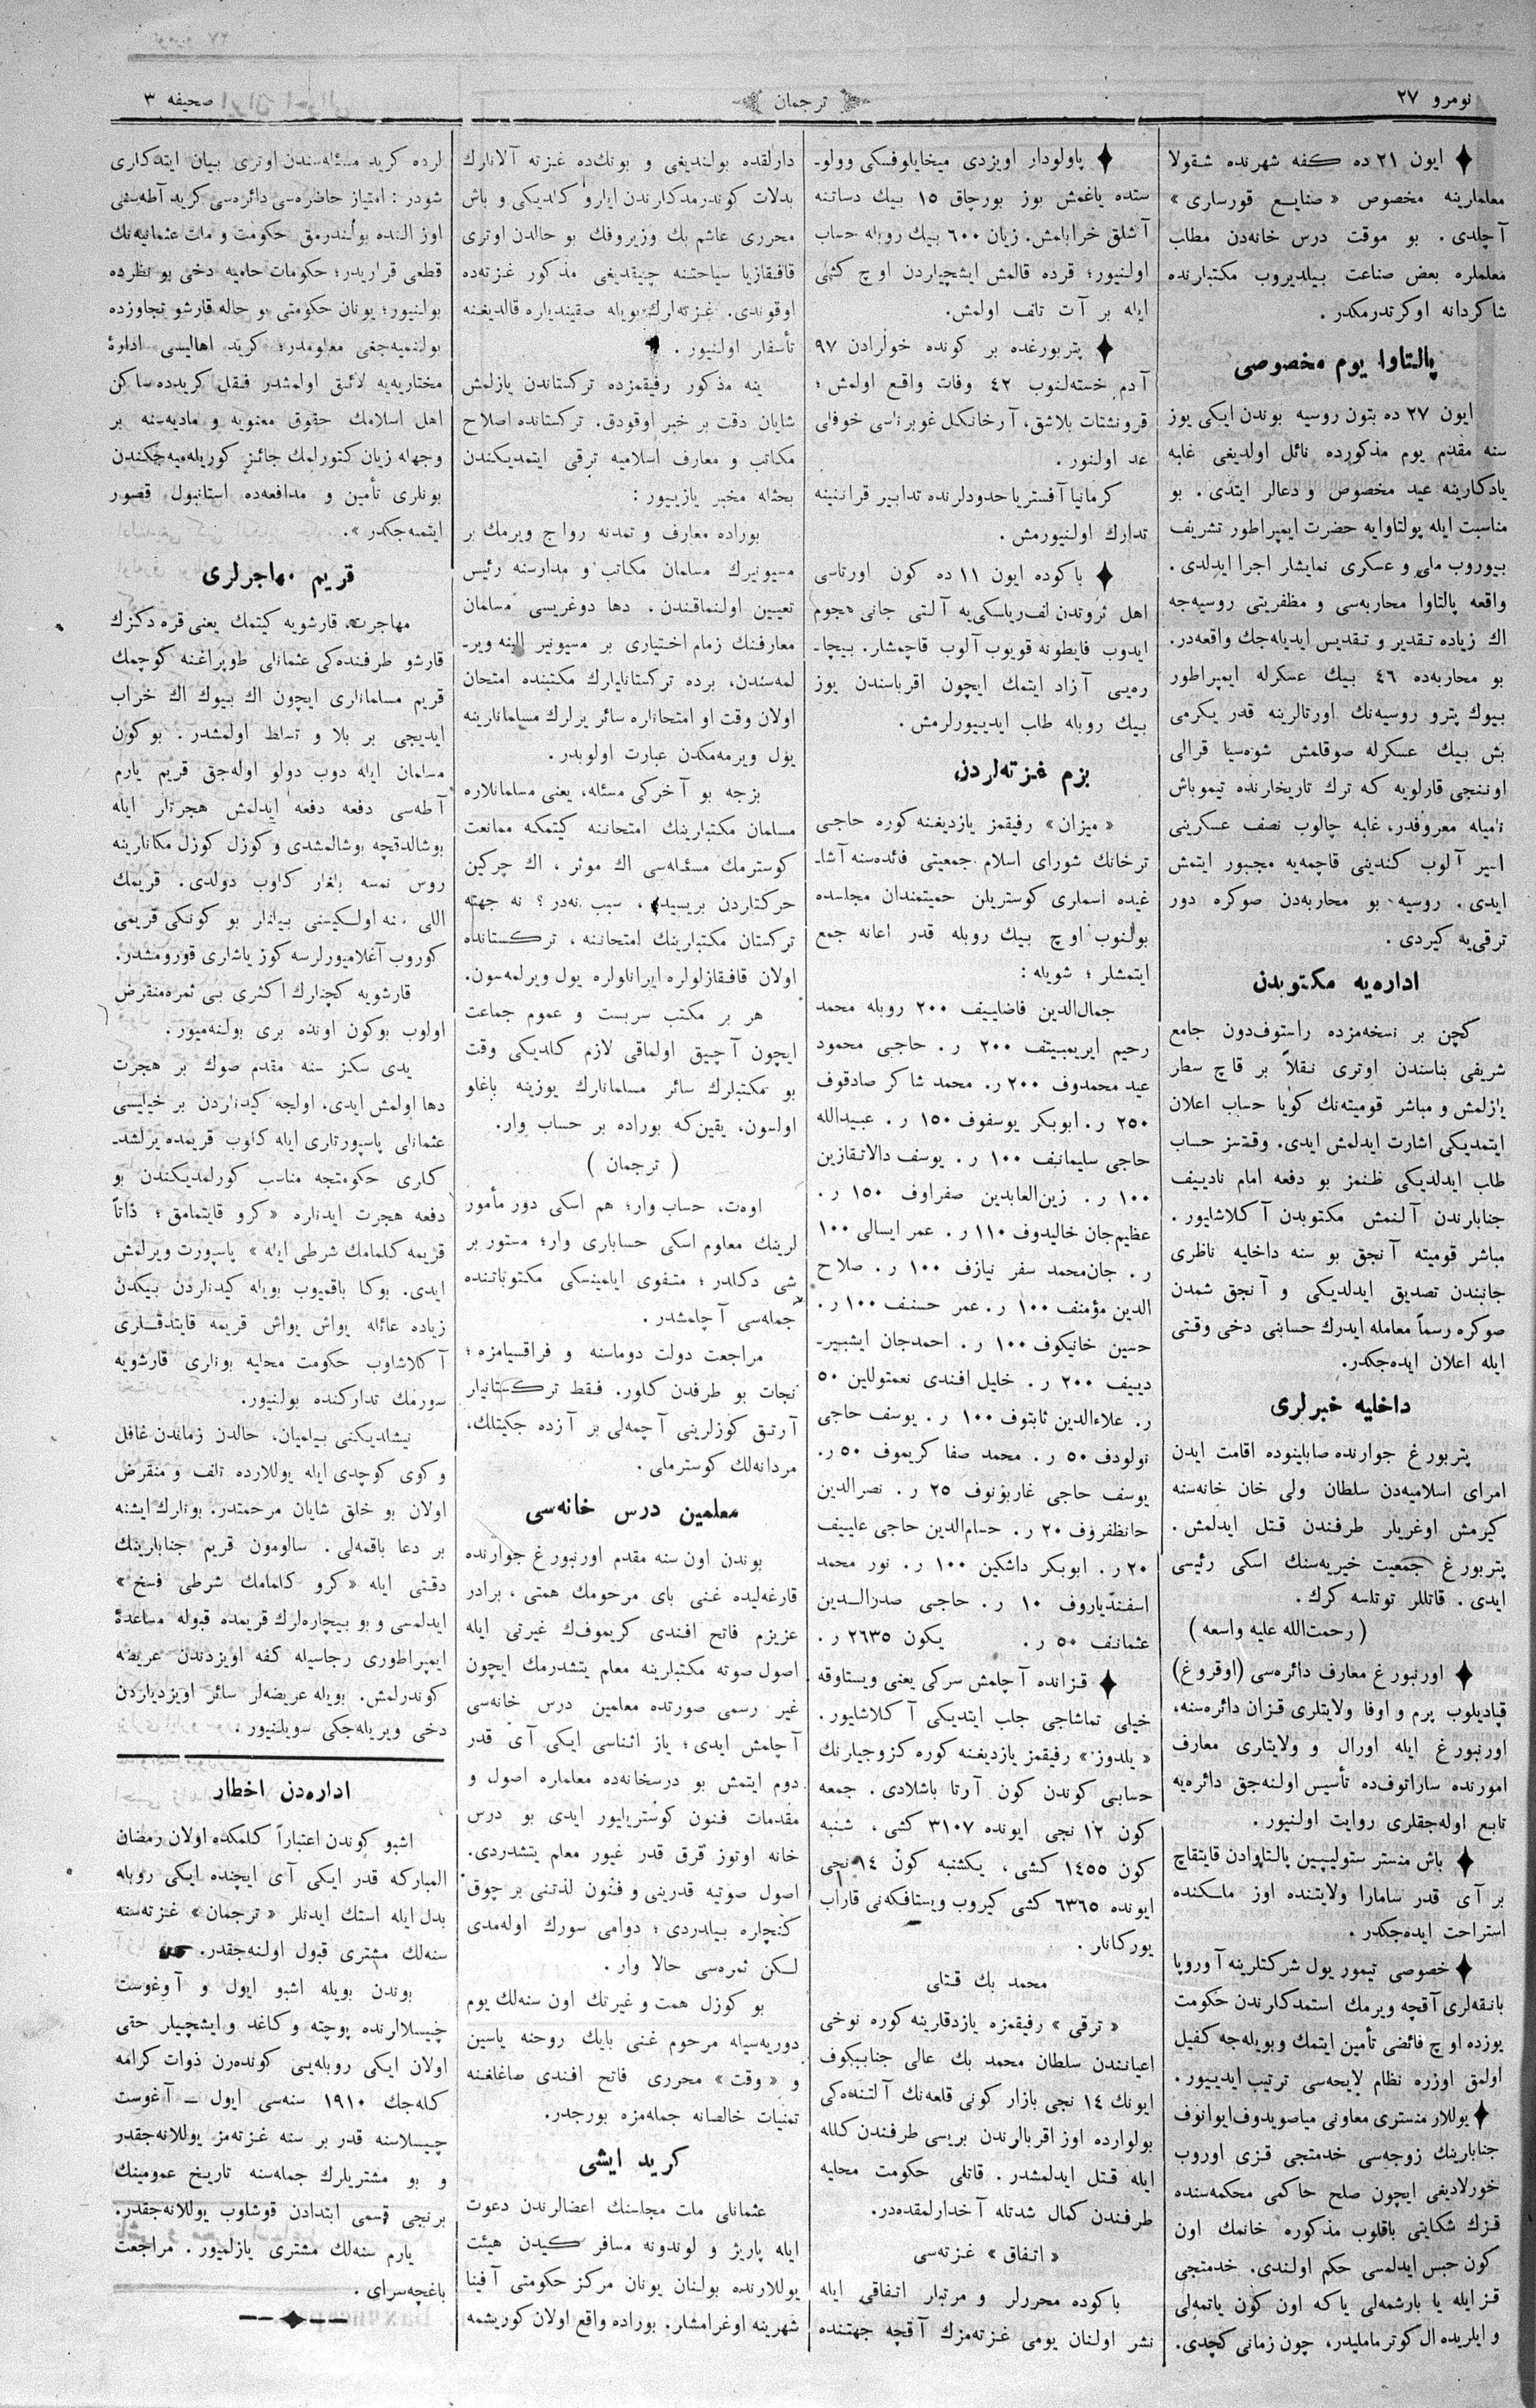 نومرو ٢٧
ترجمان
صحيفه ٣
ايون ٢١ ده كفه شهرنده شقولا
معلملرينه مخصوص «صنايع قورسلرى»
آچلدى. بو موقت درس خانه‌دن مطلب
معلملره بعض صناعت بيلديروب مكتبلرنده
شاكردانه اوكرتدرمكدر.
پالتاوا يوم مخصوصى
ايون ٢٧ ده بتون روسيه بوندن ايكى يوز
سنه مقدم يوم مذكورده نائل اولديغى غلبه
يادكارينه عيد مخصوص و دعالر ايتدى. بو
مناسبت ايله پولتاوايه حضرت ايمپراطور تشريف
بيوروب ملى و عسكرى نمايشلر اجرا ايدلدى.
واقعه پالتاوا محاربه‌سى و مظفريتى روسيه‌جه
اك زياده تقدير و تقديس ايديله‌جك واقعه‌در.
بو محاربه‌ده ٤٦ بيك عسكرله ايمپراطور
بيوك پترو روسيه‌نك اورتالرينه قدر يكرمى
بش بيك عسكرله صوقلمش شوه‌سيا قرالى
اوننجى قارلويه كه ترك تاريخلرنده تيموباش
ناميله معروفدر، غلبه چالوب نصف عسكرينى
اسير آلوب كندينى قاچمه‌يه مجبور ايتمش
ايدى. روسيه بو محاربه‌دن صوكره دور
ترقى‌يه كيردى.
اداره‌يه مكتوبدن
كچن بر نسخه‌مزده راستوف‌دون جامع
شريفى بناسندن اوترى نقلاً بر قاچ سطر
يازلمش و مباشر قوميته‌نك كويا حساب اعلان
ايتمديكى اشارت ايدلمش ايدى. وقتسز حساب
طلب ايدلديكى ظنمز بو دفعه امام ناديبف
جنابلرندن آلنمش مكتوبدن آكلاشليور.
مباشر قوميته آنجق بو سنه داخليه ناظرى
جانبندن تصديق ايدلديكى و آنجق شمدن
صوكره رسماً معامله ايدرك حسابنى دخى وقتى
ايله اعلان ايده‌جكدر.
داخليه خبرلرى
پتربورغ جوارنده صابلينوده اقامت ايدن
امراى اسلاميه‌دن سلطان ولى خان خانه‌سنه
كيرمش اوغريلر طرفندن قتل ايدلمش.
پتربورغ جمعيت خيريه‌سنك اسكى رئيسى
ايدى. قاتللر توتلسه كرك.
(رحمت‌الله عليه واسعه)
اورنبورغ معارف دائره‌سى (اوقروغ)
قپاديلوب پرم و اوفا ولايتلرى قزان دائره‌سنه،
اورنبورغ ايله اورال و ولايتلرى معارف
امورنده ساراتوف‌ده تأسيس اولنه‌جق دائره‌يه
تابع اوله‌جقلرى روايت اولنيور.
باش منستر ستوليپين پالتاوادن قايتقاچ
بر آى قدر سامارا ولايتنده اوز ملكنده
استراحت ايده‌جكدر.
خصوصى تيمور يول شركتلرينه آوروپا
بانقه‌لرى آقچه ويرمك استمدكلرندن حكومت
يوزده اوچ فائضى تأمين ايتمك وبويله‌جه كفيل
اولمق اوزره نظام لايحه‌سى ترتيب ايدييور.
يوللار منسترى معاونى مياصويدوف‌ايوانوف
جنابلرينك زوجه‌سى خدمتجى قزى اوروب
خورلاديغى ايچون صلح حاكمى محكمه‌سنده
قزك شكايتى باقلوب مذكوره خانمك اون
كون حبس ايدلمسى حكم اولندى. خدمتجى
قز ايله يا بارشمه‌لى ياكه اون كون ياتمه‌لى
و ايلريده ال كوترماميلدر، چون زمانى كچدى.
پاولودار اويزدى ميخايلوفسكى وولو-
ستده ياغمش بوز بورچاق ١٥ بيك دساتنه
آشلق خرابلمش. زيان ٦٠٠ بيك روبله حساب
اولنيور؛ قرده قالمش ايشچيلردن اوچ كشى
ايله بر آت تلف اولمش.
پتربورغده بر كونده خوارادن ٩٧
آدم خسته‌لنوب ٤٢ وفات واقع اولمش؛
قرونشتات بلاشق، آرخانكل غوبرناسى خوفلى
عد اولنور.
كرمانيا آفستريا حدودلرنده تدابير قرانتينه
تدارك اولنيورمش.
باكوده ايون ١١ ده كون اورتاسى
اهل ثروتدن لف‌رياسكى‌يه آلتى جانى هجوم
ايدوب فايطونه قويوب آلوب قاچمشلر. بيچا-
ره‌يى آزاد ايتمك ايچون اقرباسندن يوز
بيك روبله طلب ايدييورلرمش.
بزم غزته‌لردن
«ميزان» رفيقمز يازديغنه كوره حاجى
ترخانك شوراى اسلام جمعيتى فائده‌سنه آشا-
غيده اسملرى كوستريلن حميتمندان مجلسده
بولنوب اوچ بيك روبله قدر اعانه جمع
ايتمشلر؛ شويله:
جمال‌الدين فاضلييف ٢٠٠ روبله محمد
رحيم ايريمبيتف ٢٠٠ ر. حاجى محمود
عيد محمدوف ٢٠٠ر. محمد شاكر صادقوف
٢٥٠ ر. ابوبكر يوسفوف ١٥٠ ر. عبيدالله
حاجى سليمانف ١٠٠ ر. يوسف دالاتقازين
١٠٠ ر. زين‌العابدين صفراوف ١٥٠ ر.
عظيم‌جان خاليدوف ١١٠ ر. عمر ايسالى ١٠٠
ر. جان‌محمد سفر نيازف ١٠٠ ر. صلاح
الدين مؤمنف ١٠٠ ر. عمر حسنف ١٠٠ ر.
حسين خانيكوف ١٠٠ ر. احمدجان ايشبير-
دييف ٢٠٠ ر. خليل افندى نعمتوللين ٥٠
ر. علاءالدين ثابتوف ١٠٠ ر. يوسف حاجى
نولودف ٥٠ ر. محمد صفا كريموف ٥٠ ر.
يوسف حاجى غاربؤنوف ٢٥ ر. نصرالدين
حانظفروف ٢٠ ر. حسام‌الدين حاجى علييف
٢٠ ر. ابوبكر داشكين ١٠٠ ر. نور محمد
اسفندياروف ١٠ ر. حاجى صدرالدين
عثمانف ٥٠ ر. يكون ٢٦٣٥ ر.
قزانده آچلمش سركى يعنى ويستاوقه
خيلى تماشاجى جلب ايتديكى آكلاشليور.
«يلدوز» رفيقمز يازديغنه كوره كزوجيلرنك
حسابى كوندن كون آرتا باشلادى. جمعه
كون ١٢ نجى ايونده ٣١٠٧ كشى، شنبه
كون ١٤٥٥ كشى، يكشنبه كون ١٤ نجى
ايونده ٦٣٦٥ كشى كيروب ويستافكه‌نى قاراب
يوركانلر.
محمد بك قتلى
«ترقى» رفيقمزه يازدقلرينه كوره نوخى
اعيانندن سلطان محمد بك عالى جنابيكوف
ايونك ١٤ نجى بازار كونى قلعه‌نك آلتنده‌كى
بولوارده اوز اقربالرندن بريسى طرفندن كلله
ايله قتل ايدلمشدر. قاتلى حكومت محليه
طرفندن كمال شدتله آخدارلمقده‌در.
«اتفاق» غزته‌سى
باكوده محررلر و مرتبلر اتفاقى ايله
نشر اولنان يومى غزته‌مزك آقچه جهتنده
دارلقده بولنديغى و بونك‌ده غزته آلانلرك
بدلات كوندرمدكلرندن ايلرو كلديكى و باش
محررى عاشم بك وزيروفك بو حالدن اوترى
قافقازيا سياحتنه چيقديغى مذكور غزته‌ده
اوقوندى. غزته‌لرك بويله صقينديلره قالديغنه
تأسفلر اولنيور.
ينه مذكور رفيقمزده تركستاندن يازلمش
شايان دقت بر خبر اوقودق. تركستانده اصلاح
مكاتب و معارف اسلاميه ترقى ايتمديكندن
بحثله مخبر يازييور:
بوراده معارف و تمدنه رواج ويرمك بر
مسيونيرك مسلمان مكاتب و مدارسنه رئيس
تعيين اولنماقندن. دها دوغريسى مسلمان
معارفنك زمام اختيارى بر مسيونير الينه وير-
لمه‌سندن، برده تركستانليلرك مكتبنده امتحان
اولان وقت او امتحانلره سائر يرلرك مسلمانلرينه
يول ويرمه‌مكدن عبارت اولوبدر.
بزجه بو آخركى مسئله، يعنى مسلمانلاره
مسلمان مكتبلرينك امتحاننه كيتمكه ممانعت
كوسترمك مسئله‌سى اك موثر، اك چركين
حركتلردن بريسيدر، سبب نه‌در؟ نه جهته
تركستان مكتبلرينك امتحاننه، تركستانده
اولان قافقازلولره ايرانلولره يول ويرلمه‌سون.
هر بر مكتب سربست و عموم جماعت
ايچون آچيق اولماقى لازم كلديكى وقت
بو مكتبلرك سائر مسلمانلرك يوزينه باغلو
اولسون، يقين‌كه بوراده بر حساب وار.
(ترجمان)
اوه‌ت، حساب وار؛ هم اسكى دور مأمور
لرينك معلوم اسكى حسابلرى وار؛ مستور بر
شى دكلدر؛ متفوى ايلمينسكى مكتوباتنده
جمله‌سى آچلمشدر.
مراجعت دولت دوماسنه و فراقسيامزه؛
نجات بو طرفدن كلور. فقط تركستانيلر
آرتق كوزلرينى آچمه‌لى بر آزده جكيتلك،
مردانه‌لك كوسترملى.
معلمين درس خانه‌سى
بوندن اون سنه مقدم اورنبورغ جوارنده
قارغه‌ليده غنى باى مرحومك همتى، برادر
عزيزم فاتح افندى كريموف‌ك غيرتى ايله
اصول صوته مكتبلرينه معلم يتشدرمك ايچون
غير رسمى صورتده معلمين درس خانه‌سى
آچلمش ايدى؛ ياز اثناسى ايكى آى قدر
دوم ايتمش بو درسخانه‌ده معلملره اصول و
مقدمات فنون كوستريليور ايدى بو درس
خانه اوتوز قرق قدر غيور معلم يتشدردى.
اصول صوتيه قدرينى و فنون لذتنى بر چوق
كنجلره بيلدردى؛ دوامى سورك اوله‌مدى
لكن ثمره‌سى حالا وار.
بو كوزل همت و غيرتك اون سنه‌لك يوم
دوريه‌سيله مرحوم غنى بايك روحنه ياسين
و «وقت» محررى فاتح افندى صاغلغنه
تمنيات خالصانه جمله‌مزه بورجدر.
كريد ايشى
عثمانلى ملت مجلسنك اعضالرندن دعوت
ايله پاريژ و لوندونه مسافر كيدن هيئت
يوللارنده بولنان يونان مركز حكومتى آفينا
شهرينه اوغرامشلر. بوراده واقع اولان كوريشمه
لرده كريد مسئله‌سندن اوترى بيان ايتدكلرى
شودر: امتياز حاضره‌سى دائره‌سى كريد آطه‌سنى
اوز النده بولندرمق حكومت و ملت عثمانيه‌نك
قطعى قراريدر؛ حكومات حاميه دخى بو نظرده
بولنيور؛ يونان حكومتى بو حاله قارشو تجاوزده
بولنميه‌جغى معلومدر؛ كريد اهاليسى ادارهٔ
مختاريه‌يه لائق اولمشدر فقط كريدده ساكن
اهل اسلامك حقوق معنويه و ماديه‌سنه بر
وجهله زيان كتورلمك جائز كوريله‌ميه‌جكندن
بونلرى تأمين و مدافعه‌ده استانبول قصور
ايتميه‌جكدر».
قريم مهاجرلرى
مهاجرت، قارشويه كيتمك يعنى قره دكزك
قارشو طرفنده‌كى عثمانلى طوپراغنه كوچمك
قريم مسلمانلرى ايچون اك بيوك اك خراب
ايديجى بر بلا و تسلط اولمشدر. بوكون
مسلمان ايله دوب دولو اوله‌جق قريم يارم
آطه‌سى دفعه دفعه ايدلمش هجرتلر ايله
بوشالدقچه بوشالمشدى و كوزل كوزل مكانلرينه
روس نمسه بلغار كلوب دولدى. قريمك
اللى سنه اولكيسنى بيلنلر بو كونكى قريمى
كوروب آغلاميورلرسه كوز ياشلرى قورومشدر.
قارشويه كچنلرك اكثرى بى ثمره‌منقرض
اولوب بوكون اونده برى بولنه‌ميور.
يدى سكز سنه مقدم صوك بر هجرت
دها اولمش ايدى. اولجه كيدنلردن بر خيليسى
عثمانلى پاسپورتلرى ايله كلوب قريمده يرلشد-
كلرى حكومتجه مناسب كورلمديكندن بو
دفعه هجرت ايدنلره «كرو قايتمامق؛ ذاتاً
قريمه كلمامك شرطى ايله» پاسپورت ويرلمش
ايدى. بوكا باقميوب بويله كيدنلردن بيكدن
زياده عائله يواش يواش قريمه قايتدقلرى
آكلاشلوب حكومت محليه بونلرى قارشويه
سورمك تداركنده بولنيور.
نيشلديكنى بيلميان، حالدن زماندن غافل
و كوى كوچدى ايله يوللارده تلف و منقرض
اولان بو خلق شايان مرحمتدر. بونلرك ايشنه
بر دعا باقمه‌لى. سالومون قريم جنابلرينك
دقتى ايله «كرو كلمامك شرطى فسخ»
ايدلمسى و بو بيچاره‌لرك قريمده قبوله مساعدهٔ
ايمپراطورى رجاسيله كفه اويزدندن عريضه
كوندرلمش. بويله عريضه‌لر سائر اويزدلردن
دخى ويريله‌جكى سويلنيور.
اداره‌دن اخطار
اشبو كوندن اعتباراً كلمكده اولان رمضان
المباركه قدر ايكى آى ايچنده ايكى روبله
بدل ايله استك ايدنلر «ترجمان» غزته‌سنه
سنه‌لك مشترى قبول اولنه‌جقدر.
بوندن بويله اشبو ايول و آوغوست
چيسلالرنده پوچته و كاغد و ايشچيلر حقى
اولان ايكى روبله‌يى كوندرن ذوات كرامه
كله‌جك ١٩١٠ سنه‌سى ايول ـ آغوست
چيسلاسنه قدر بر سنه غزته‌مز يوللانه‌جقدر
و بو مشتريلرك جمله‌سنه تاريخ عمومينك
برنجى قسمى ابتدادن قوشلوب يوللانه‌جقدر.
يارم سنه‌لك مشترى يازلميور. مراجعت
باغچه‌سراى.